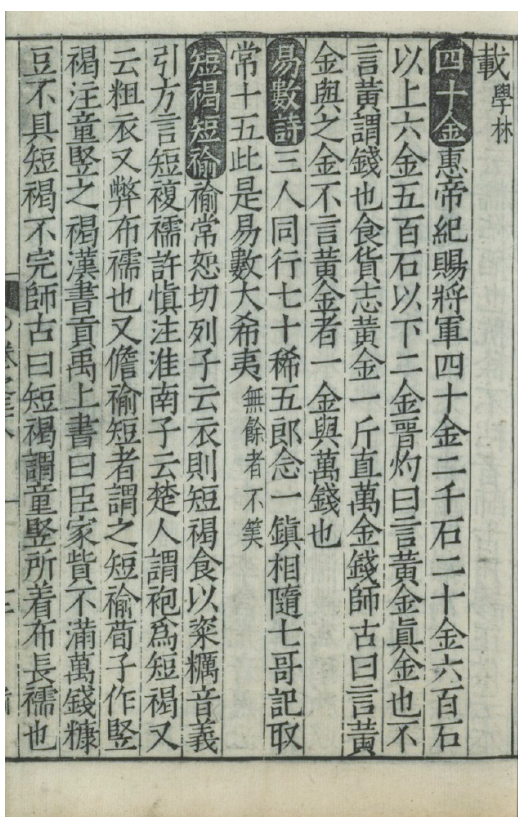 載學林
四十金惠帝紀賜將軍四十金二千石二十金六百石
以上六金五百石以下二金晋灼曰言黄金真金也不
言黄謂錢也食貨志黄金一斤直萬金錢師古曰言黄
金與之金不言黄金者一金與萬錢也
易數詩三人同行七十稀五郎念一鎮相隨七哥記取
常十五此是易數大希夷無餘者不笑
短褐短褕褕常恕切列子云衣則短褐食以粢糲音義
引方言短複襦許慎注淮南子云楚人謂袍爲短褐又
云粗衣又弊布襦也又儋褕短者謂之短褕荀子作竪
褐注童竪之褐漢書貢禹上書曰臣家貲不滿萬錢糠
豆不具短褐不完師古曰短褐謂童竪所着布長襦也